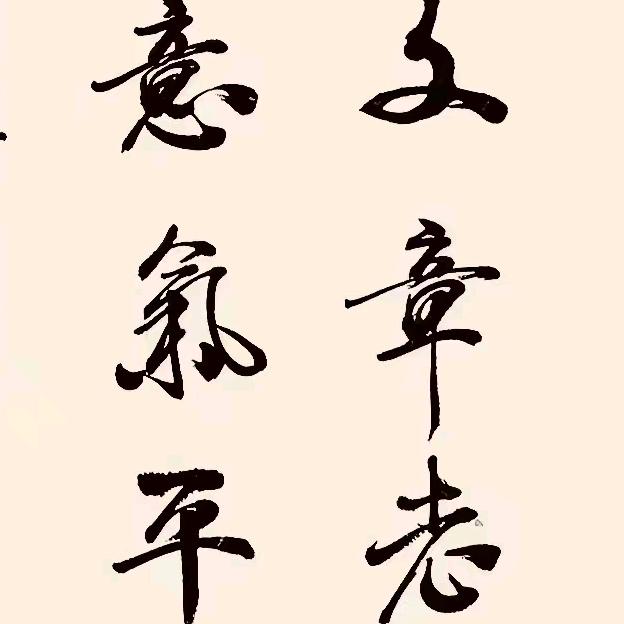 文章老
意氣平